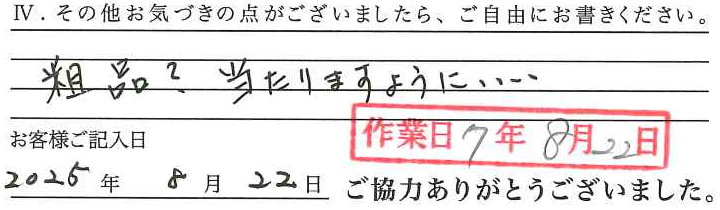 Ⅳ．その他お気づきの点がございましたら、ご自由にお書きください。
粗品？当たりますように、、、、
作業日 7年 8月22日
お客様ご記入日
2025 年 8 月 22 日 ご協力ありがとうございました。